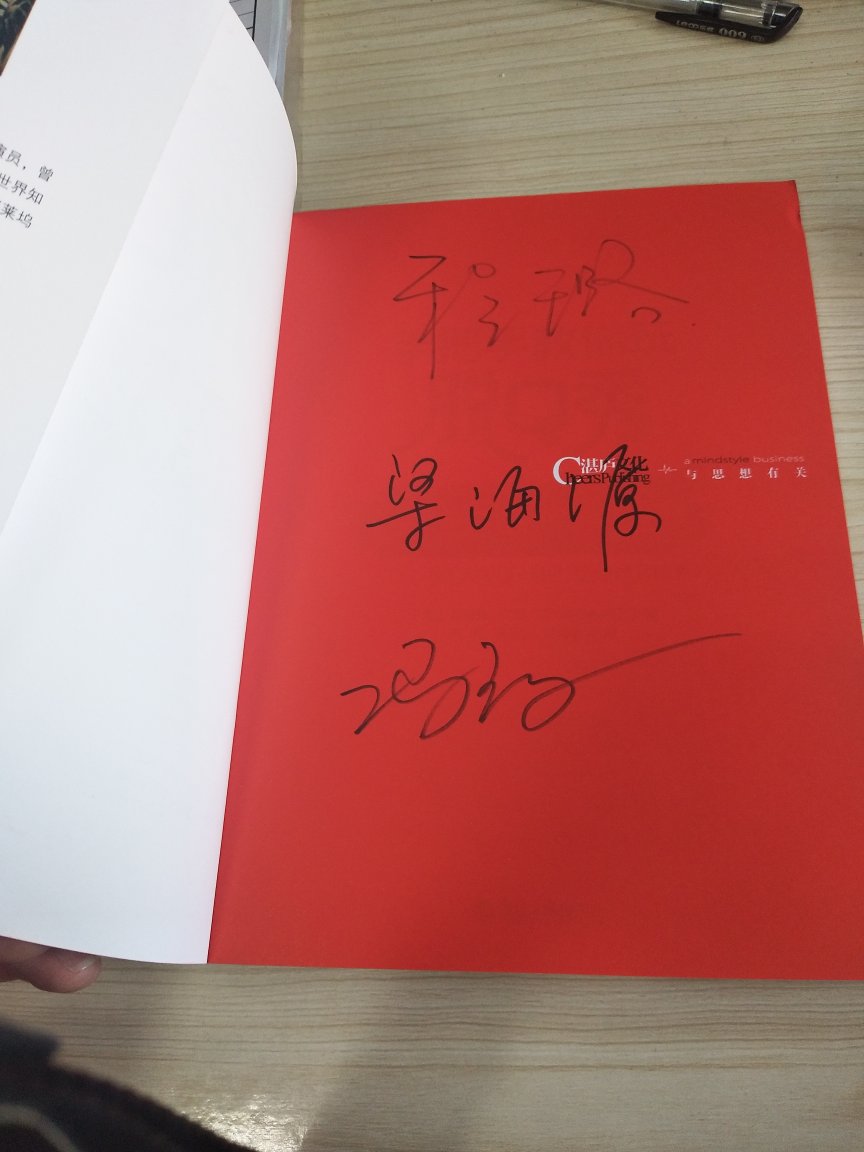 员，曾
世界知
莱坞
程璐
湛庐文化
Cheers Publishing
a mindstyle business
与思想有关
梁海源
冯